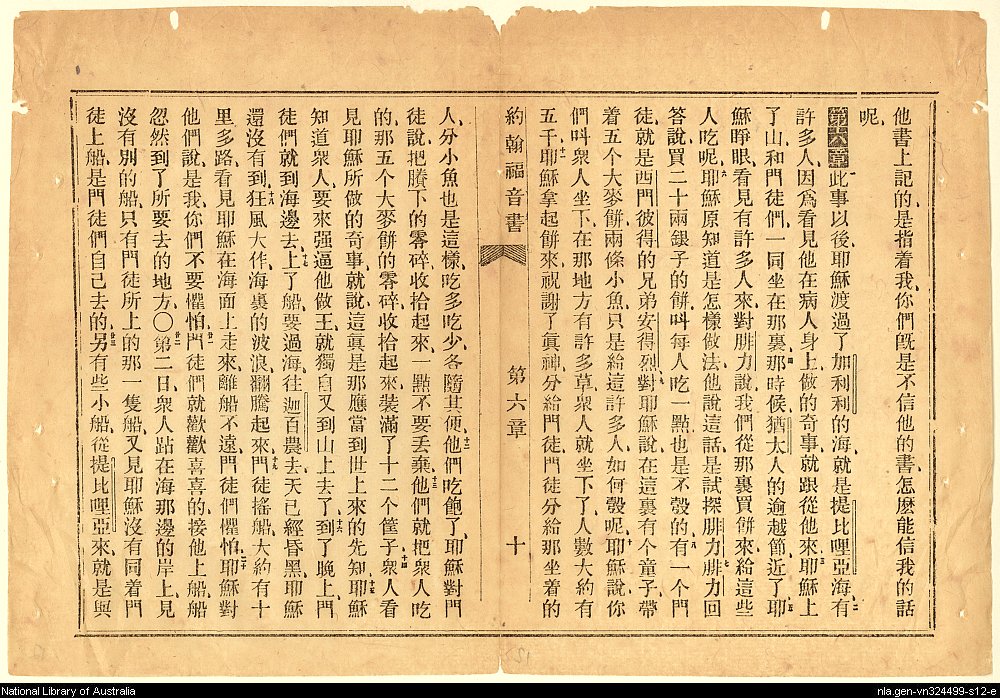 他書上記的是指着我、你們旣是不信他的書、怎麼能信我的話
呢、
第六章 一此事以後、耶穌渡過了加利利的海、就是提比哩亞海、二有
許多人、因爲看見他在病人身上做的奇事、就跟從他來、三耶穌上
了山、和門徒們一同坐在那裏、四那時候猶太人的逾越節近了、五耶
穌睜眼看見有許多人來、對腓力說、我們從那裏買餅來、給這些
人吃呢、六耶穌原知道是怎樣做法、他說這話、是試探腓力、七腓力回
答說、買二十兩銀子的餅、呌每人吃一點、也是不彀的、八有一個門
徒、就是西門彼得的兄弟安得烈、對耶穌說、九在這裏有個童子、帶
着五个大麥餅、兩條小魚、只是給這許多人、如何彀呢、十耶穌說、你
們呌衆人坐下、在那地方有許多草、衆人就坐下了、人數大約有
五千、十一耶穌拿起餅來、祝謝了眞神、分給門徒、門徒分給那坐着的
約翰福音書 第六章 十
人、分小魚也是這樣、吃多吃少、各隨其便、十二他們吃飽了、耶穌對門
徒說、把賸下的零碎收拾起來、一點不要丢棄、十三他們就把衆人吃
的那五个大麥餅的零碎、收拾起來、裝滿了十二个筐子、十四衆人看
見耶穌所做的奇事、就說、這眞是那應當到世上來的先知、十五耶穌
知道衆人要來强逼他做王、就獨自又到山上去了、十六到了晚上、門
徒們就到海邊去、十七上了船、要過海往迦百農去、天已經昏黑、耶穌
還沒有到、十八狂風大作、海裏的波浪翻騰起來、十九門徒搖船、大約有十
里多路、看見耶穌在海面上走來、離船不遠、門徒們懼怕、二十耶穌對
他們說、是我、你們不要懼怕、廿一門徒們就歡歡喜喜的接他上船、船
忽然到了所要去的地方、〇廿二第二日、衆人跕在海那邊的岸上、見
沒有別的船、只有門徒所上的那一隻船、又見耶穌沒有同着門
徒上船、是門徒們自己去的、廿三另有些小船、從提比哩亞來、就是與
National Library of Australia
nla.gen-vn324499-s12-e